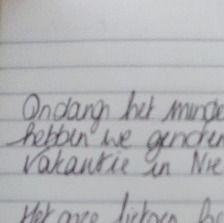 Ondangh het minde
hebben we genoten
vakantie in Nie
Het are